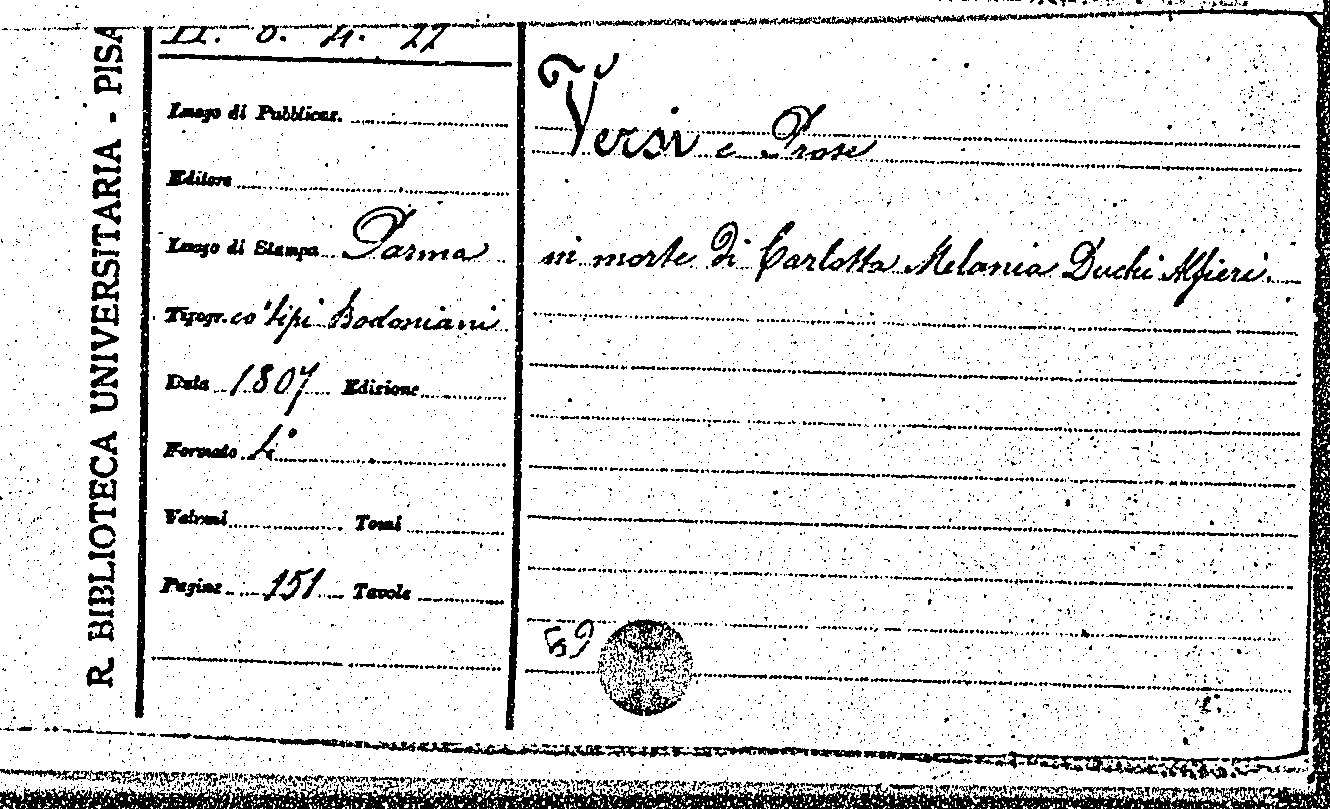 R. BIBLIOTECA UNIVERSITARIA - PISA
II. 4. 27
Luogo di Pubblicaz.
Editore
Luogo di Stampa Parma
Tipogr. co' tipi Bodoniani
Data 1807 Edizione
Formato 4°
Volumi Tomi
Pagine 151 Tavole
Versi e Prose
in morte di Carlotta Melania Duchi Alfieri.